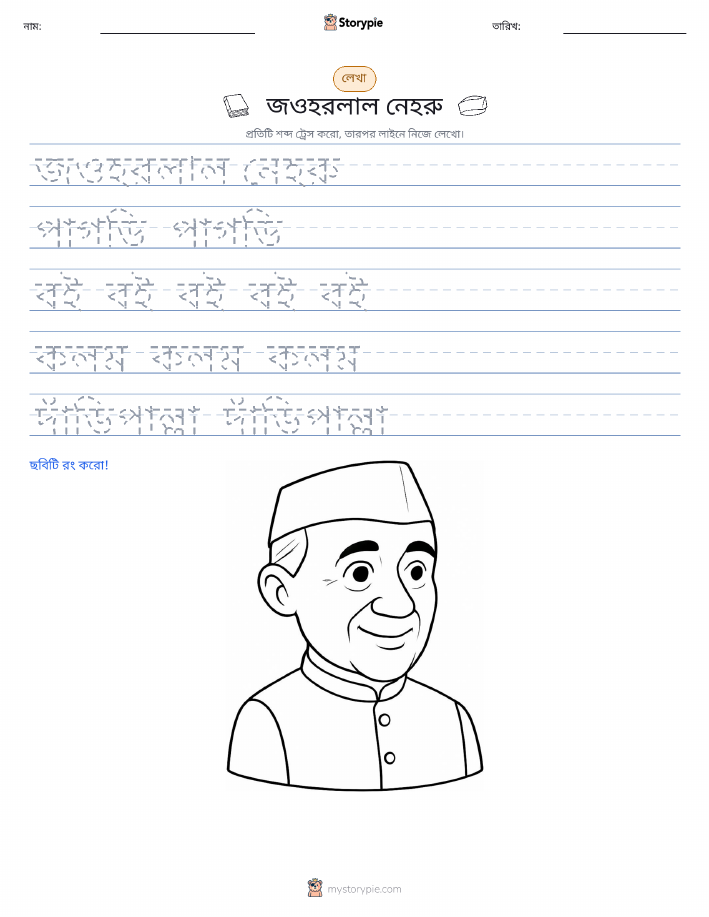 নাম:
Storypie
তারিখ:
লেখা
জওহরলাল নেহরু
প্রতিটি শব্দ ট্রেস করো, তারপর লাইনে নিজে লেখো।
জওহরলাল নেহরু
পাগড়ি পাগড়ি
বই বই বই বই বই
কলম কলম কলম
দাঁড়িপাল্লা দাঁড়িপাল্লা
ছবিটি রং করো!
mystorypie.com